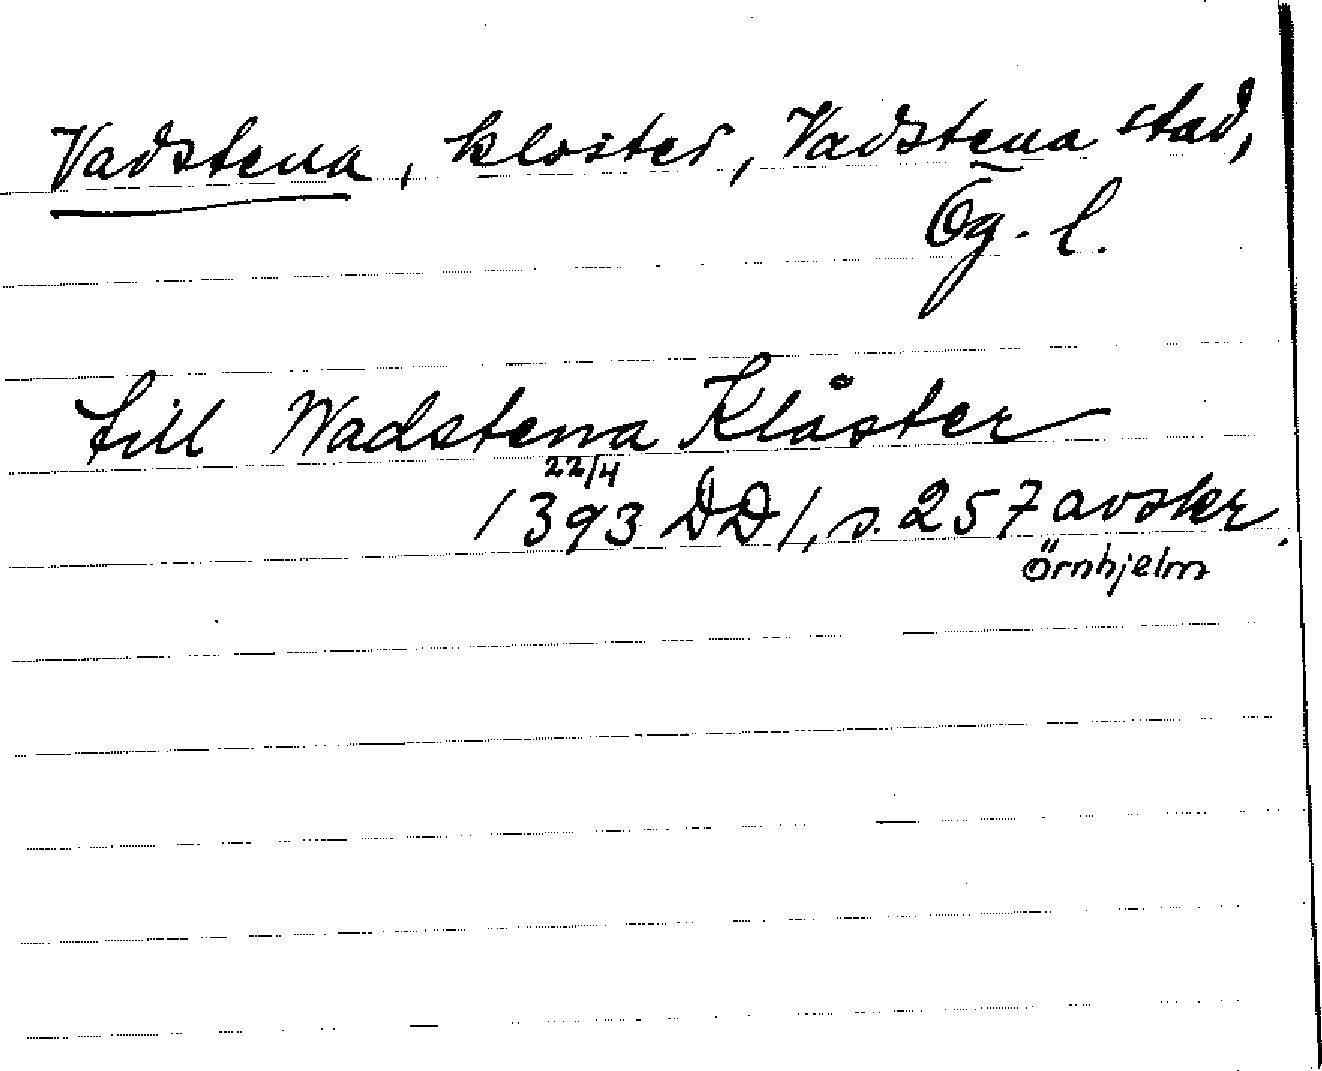 Vadstena, kloster, Vadstena stad,
Ög. l.
till Wadstena Klåster
22/4
1393 DD 1, s. 257 avskr.
Örnhjelm